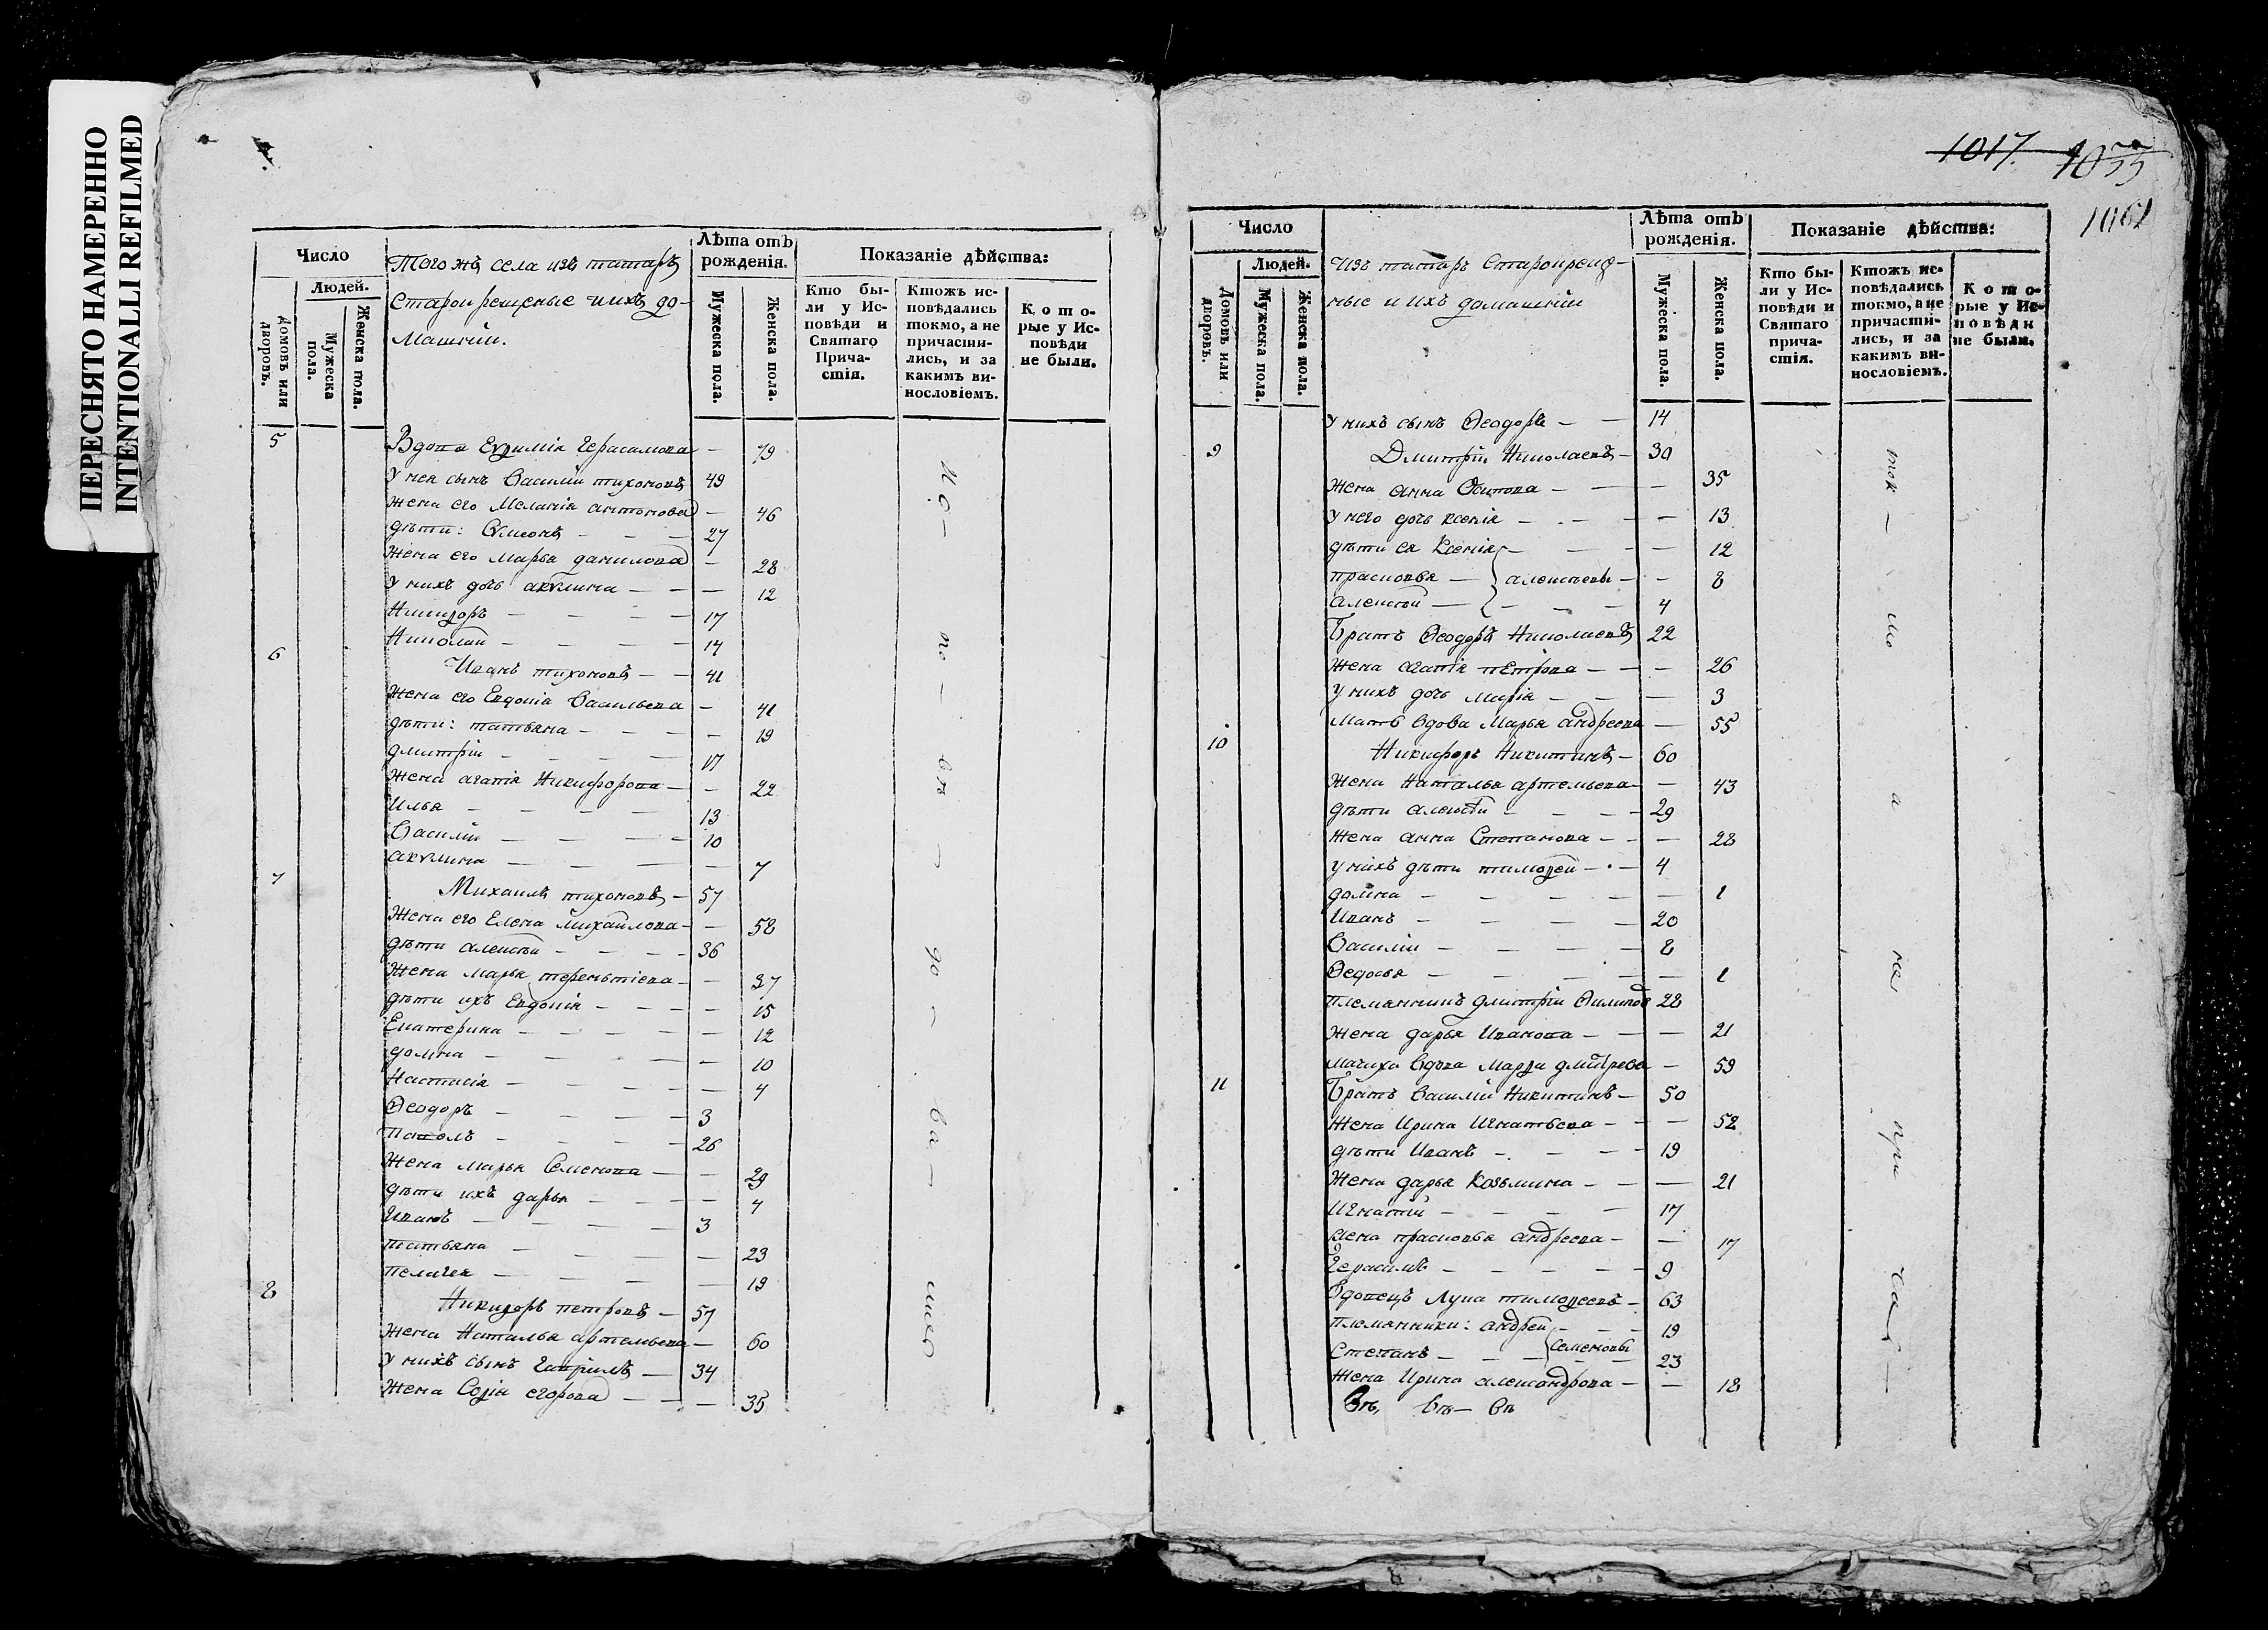 ПЕРЕСНЯТО НАМЕРЕННО
INTENTIONALLI REFILMED
Число
Людей.
Домовъ или дворовъ.
Мужеска пола.
Женска пола.
Того жъ села изъ татаръ
Старокрещеные и ихъ до-
машніи.
Лѣта отъ рожденія.
Мужеска пола.
Женска пола.
Показаніе дѣйства:
Кто бы-
ли у Ис-
повѣди и
Святаго
Прича-
стія.
Ктожъ ис-
повѣдались
токмо, а не
причасти-
лись, и за
какимъ ви-
нословіемъ.
Кото-
рые у Ис-
повѣди
не были.
5 Вдова Евѳимія Герасимова — 79
У нея сынъ Василій тихоновъ 49
жена его Меланія антонова — 46
дѣти: Сѵмеонъ — 27
жена его Марья данилова — 28
У нихъ дочь акѵлина — 12
Никифоръ — 17
Николай — 14
6 Иванъ тихоновъ — 41
жена его Евдокія Васильева — 41
дѣти: татьяна — 19
дмитрій — 17
жена агапія Никифорова — 22
Илья — 13
Василій — 10
акѵлина — 7
7 Михаилъ тихоновъ — 57
жена его Елена михайлова — 58
дѣти алексѣй — 36
жена марья терентіева — 37
дѣти ихъ Евдокія — 15
Екатерина — 12
домна — 10
Настасія — 4
Ѳеодоръ — 3
Павелъ — 26
жена марья Семенова — 29
дѣти ихъ дарья — 4
Иванъ — 3
татьяна — 23
пелагея — 19
8 Никифоръ петровъ — 57
жена Наталья артемьева — 60
У нихъ сынъ Гавріилъ — 34
жена Софія егорова — 35
1017. 1055
1061
Число
Людей.
Домовъ или дворовъ.
Мужеска пола.
Женска пола.
Изъ татаръ Старокреще-
ные и ихъ домашніи
Лѣта отъ рожденія.
Мужеска пола.
Женска пола.
Показаніе дѣйства:
Кто бы-
ли у Ис-
повѣди и
Святаго
прича-
стія.
Ктожъ ис-
повѣдались
токмо, а не
причасти-
лись, и за
какимъ ви-
нословіемъ.
Кото-
рые у Ис-
повѣди
не были.
У нихъ сынъ Ѳеодоръ — 14
9 Дмитрій Николаевъ — 30
жена анна Осипова — 35
У него дочь ксенія — 13
дѣти ея Ксенія — 12
прасковья — алексѣевы — 8
алексѣй — 4
Братъ Ѳеодоръ Николаевъ 22
жена агапія петрова — 26
У нихъ дочь марія — 3
мать вдова Марья андреева — 55
10 Никифоръ Никитинъ — 60
жена Наталья артемьева — 43
дѣти алексѣй — 29
жена анна Степанова — 28
у нихъ дѣти тимоѳей — 4
домна — 1
Иванъ — 20
Василій — 8
Ѳедосья — 1
племянникъ дмитрій Филипов 28
жена дарья Иванова — 21
мачиха вдова Марѳа дмитрева — 59
11 Братъ Василій Никитинъ — 50
жена Ирина Игнатьева — 52
дѣти Иванъ — 19
жена дарья Козьмина — 21
Игнатій — 17
жена прасковья андреева — 17
Герасимъ — 9
Вдовецъ Лука тимоѳеевъ — 63
племянники: андрей — 19
Степанъ — Семеновы — 23
жена Ирина александрова — 18